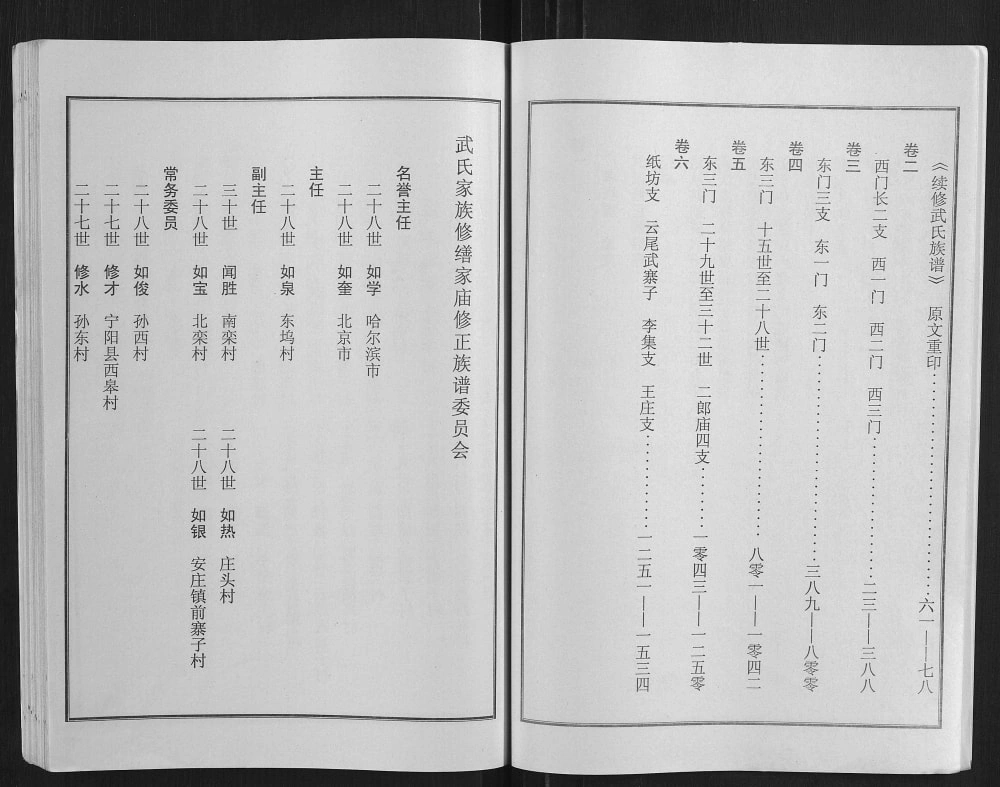 《续修武氏族谱》 原文重印……………………六一——七八
卷二
西门长二支 西一门 西二门 西三门……………二三——三八八
卷三
东门三支 东一门 东二门……………………三八九——八零零
卷四
东三门 十五世至二十八世……………………八零一——一零四二
卷五
东三门 二十九世至三十二世 二郎庙四支………一零四三——一二五零
卷六
纸坊支 云尾武寨子 李集支 王庄支…………一二五一——一五三四
武氏家族修缮家庙修正族谱委员会
名誉主任
二十八世 如学 哈尔滨市
二十八世 如奎 北京市
主任
二十八世 如泉 东坞村
副主任
三十世 闻胜 南栾村 二十八世 如热 庄头村
二十八世 如宝 北栾村 二十八世 如银 安庄镇前寨子村
常务委员
二十八世 如俊 孙西村
二十七世 修才 宁阳县西皋村
二十七世 修水 孙东村